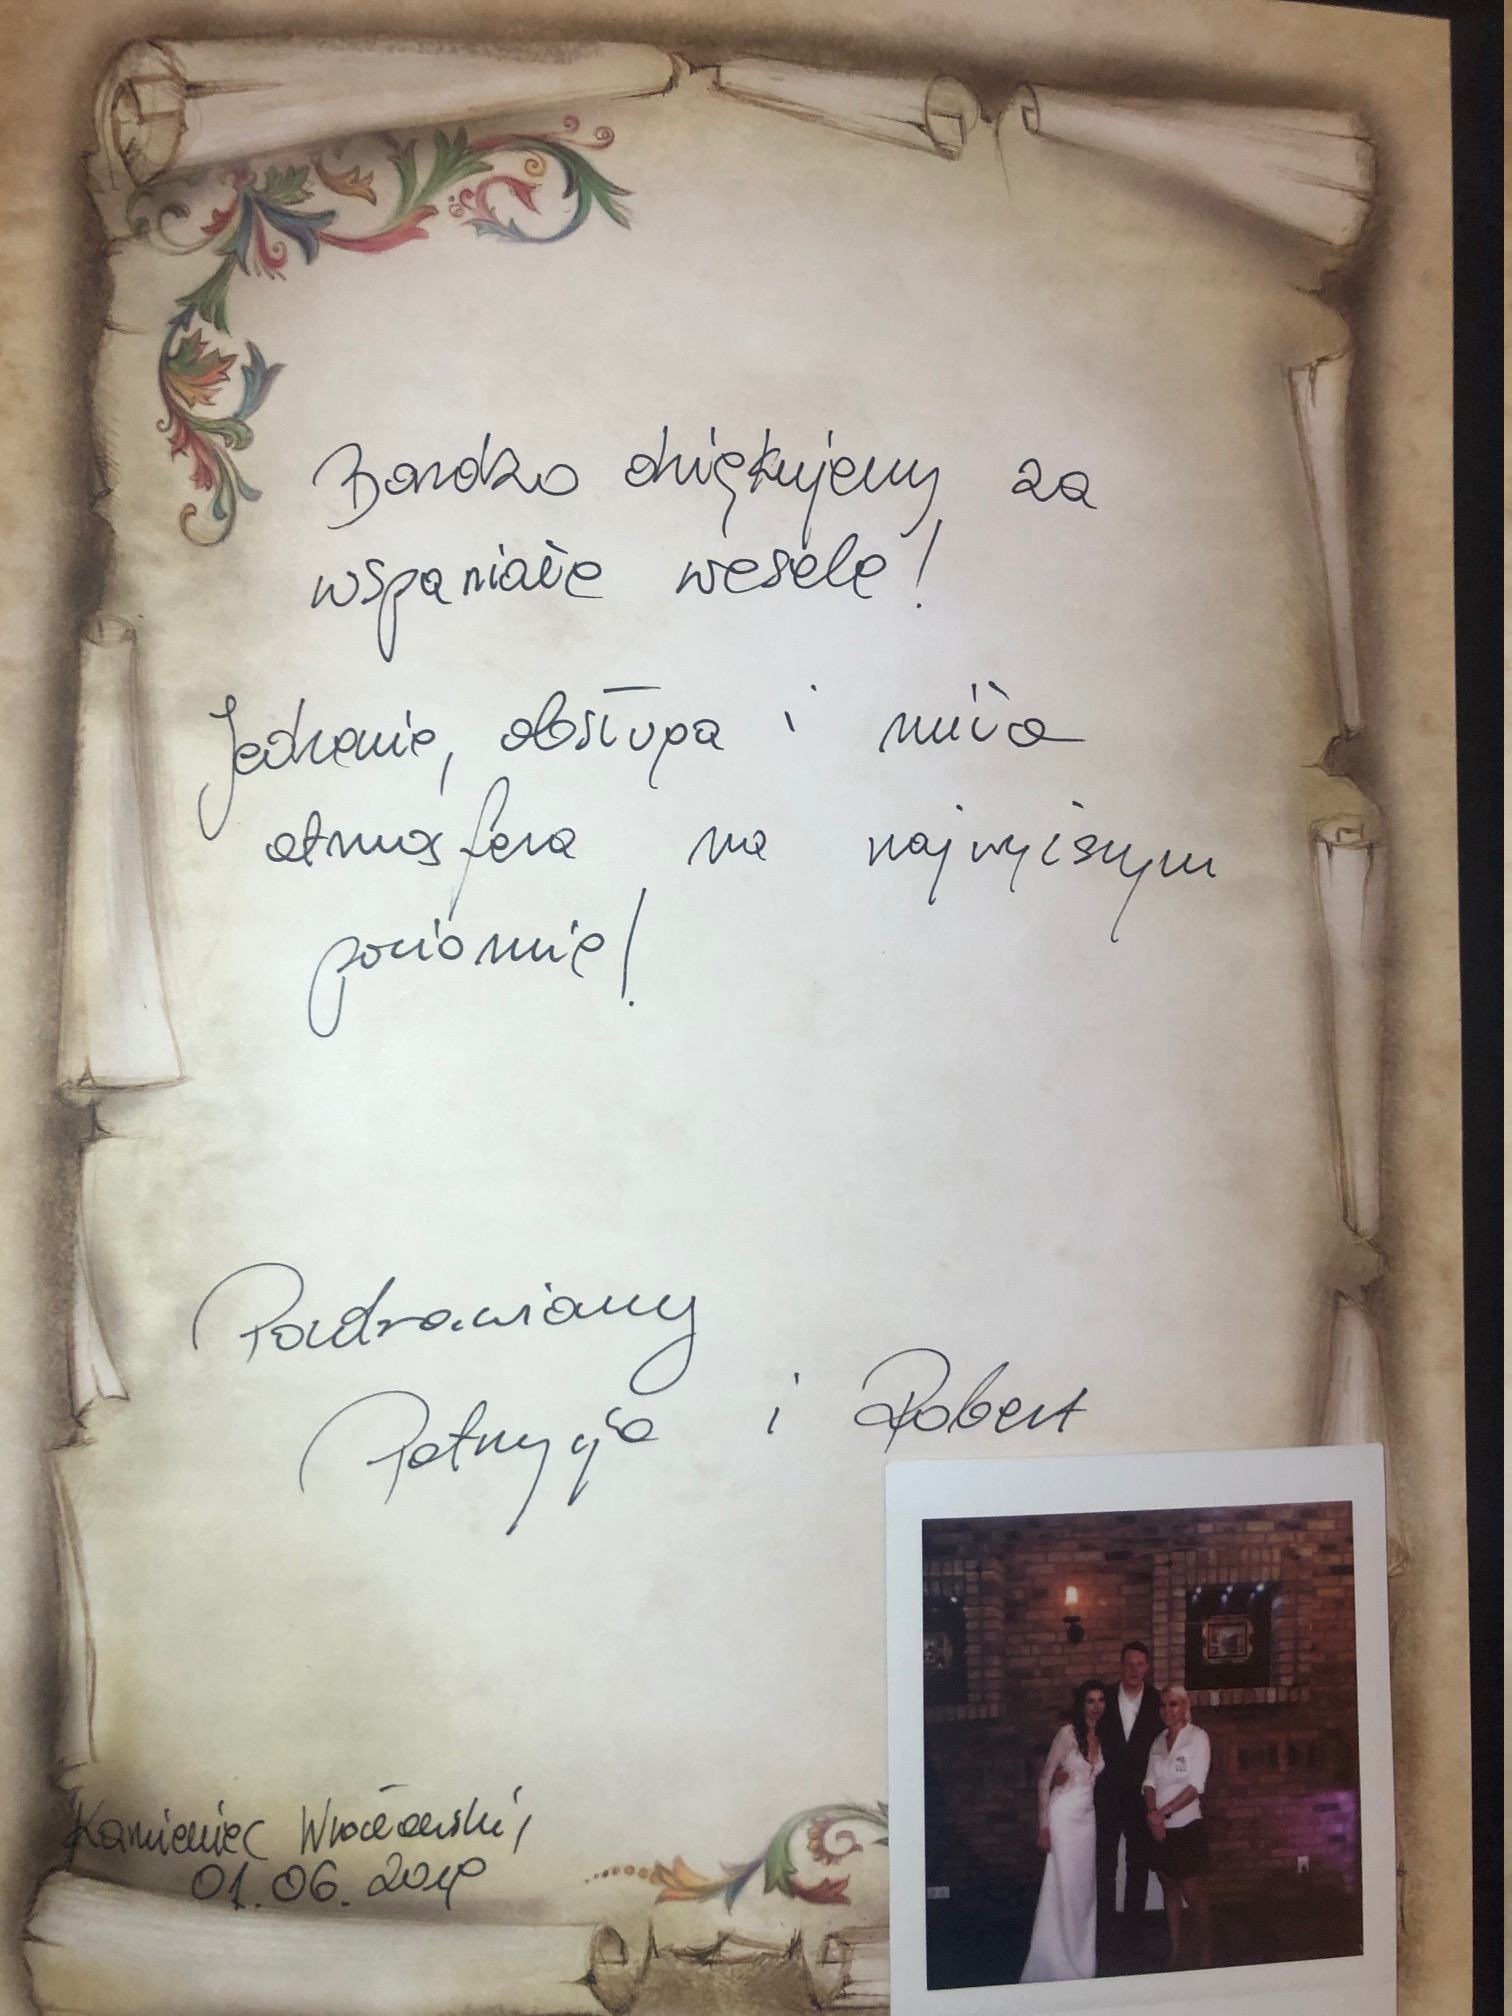 Bardzo dziękujemy za
wspaniałe wesele!
Jedzenie, obsługa i miła
atmosfera na najwyższym
poziomie!
Pozdrawiamy
Patrycja i Robert
Kamieniec Wrocławski,
01.06.2019